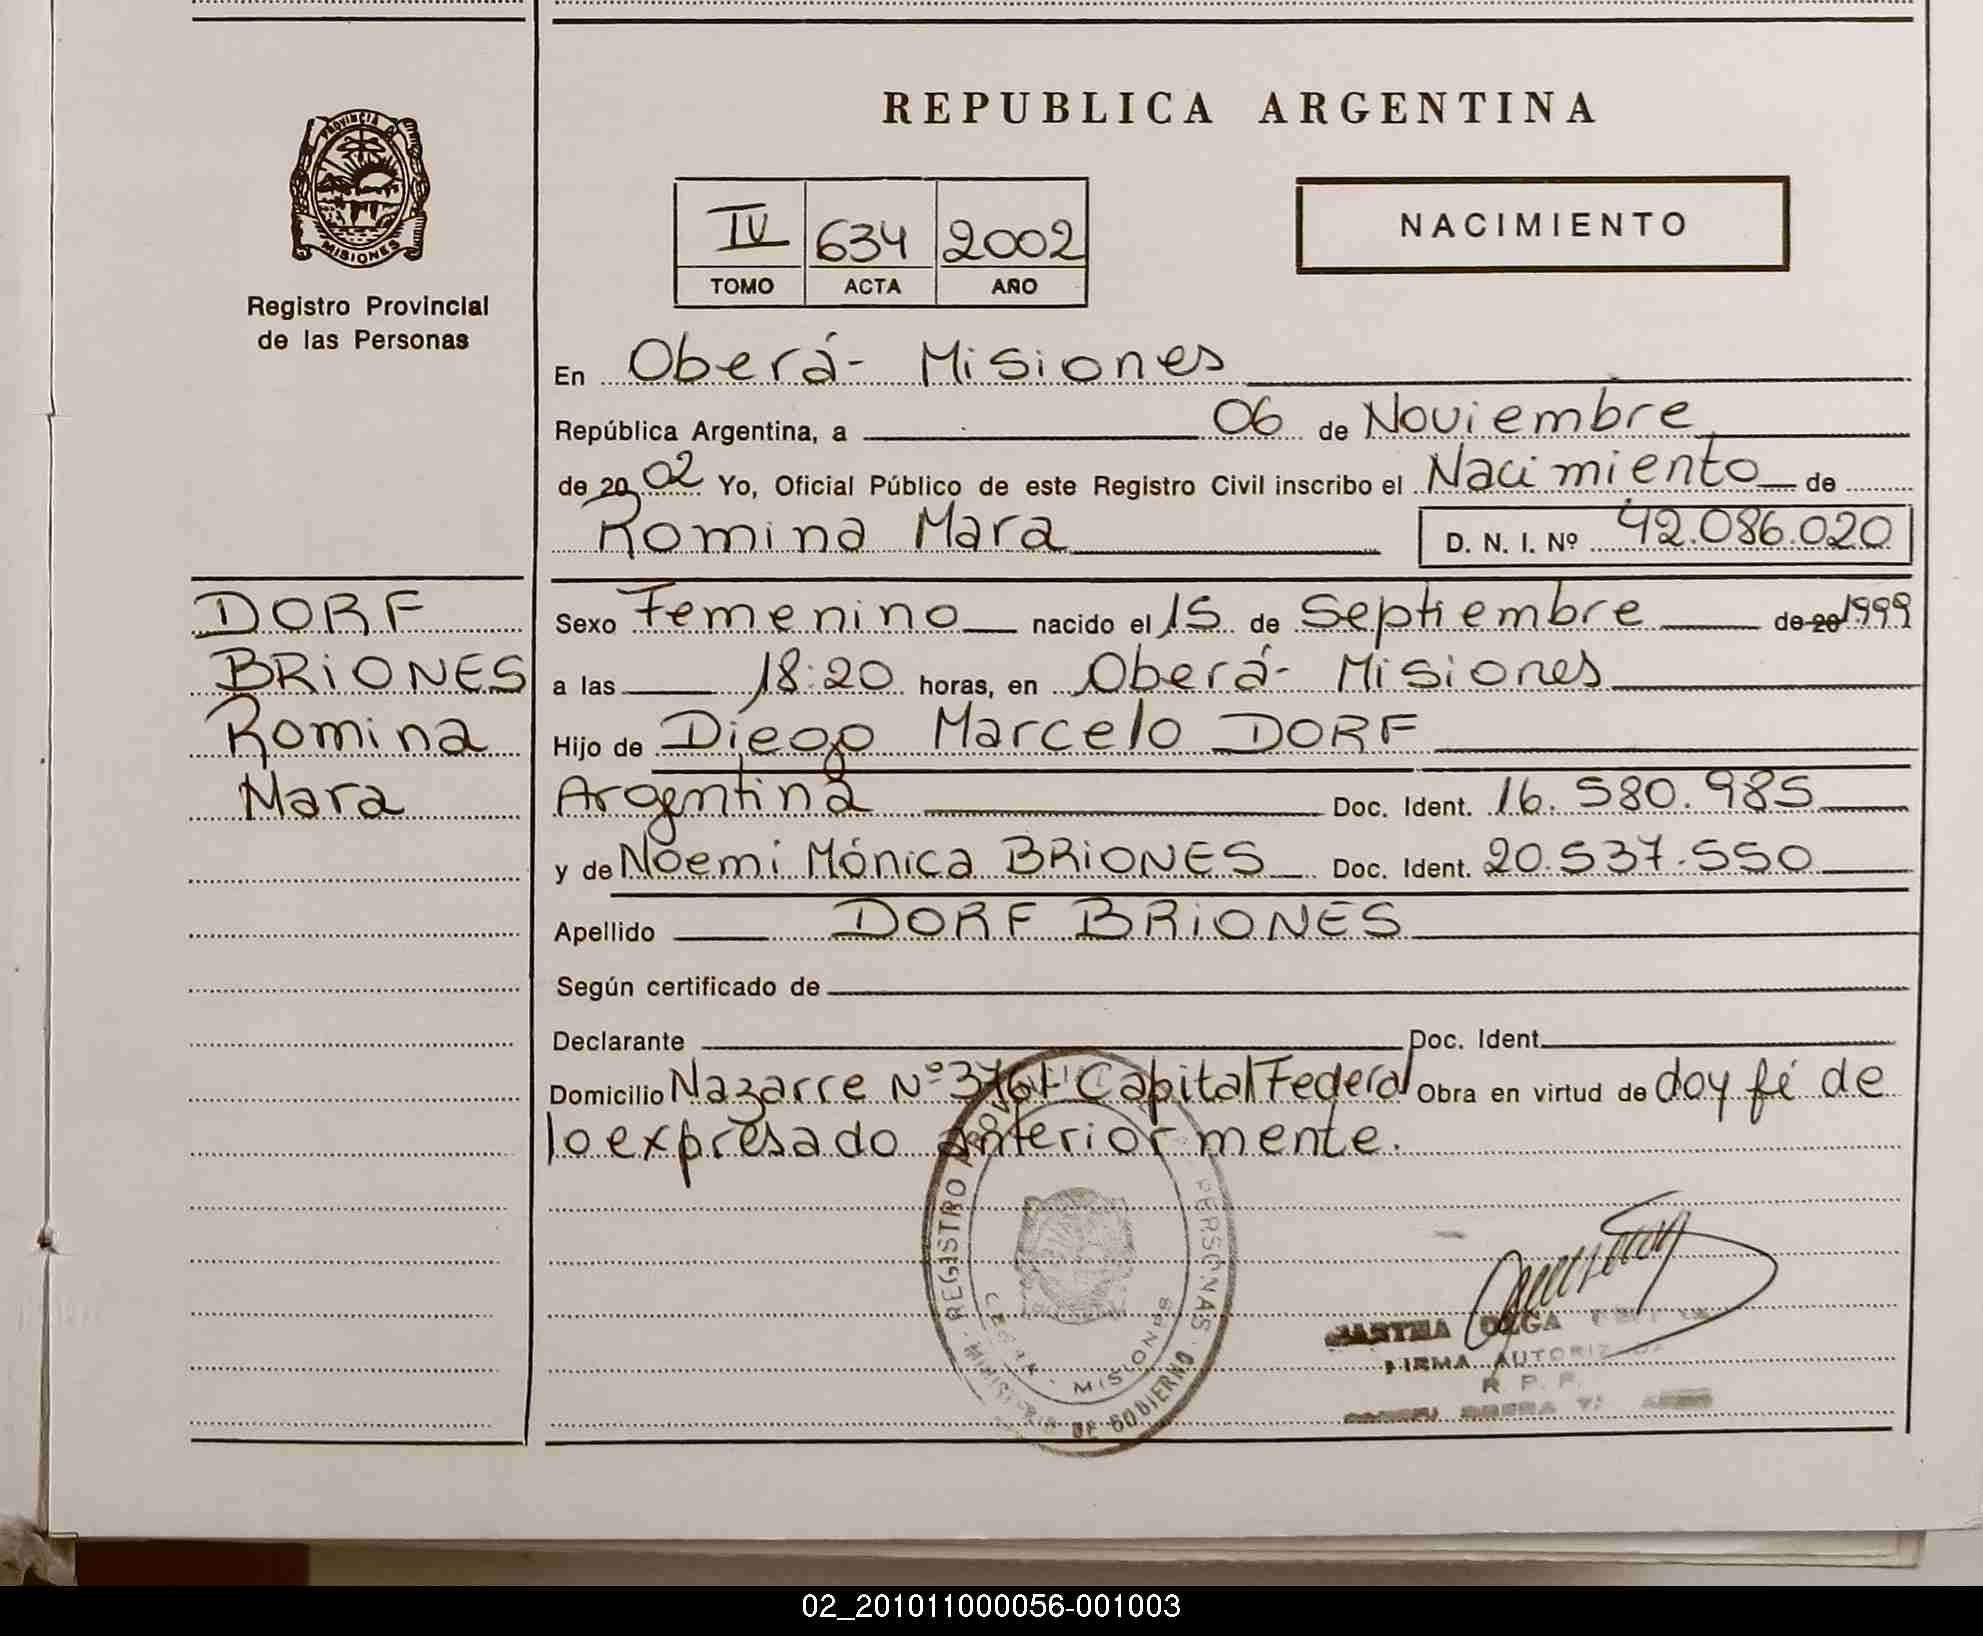 REPUBLICA ARGENTINA
PROVINCIA D MISIONES
Registro Provincial
de las Personas
IV 634 2002
TOMO ACTA AÑO
NACIMIENTO
En Oberá- Misiones
República Argentina, a 06 de Noviembre
de 20 02 Yo, Oficial Público de este Registro Civil inscribo el Nacimiento de
Romina Mara D. N. I. Nº 42.086.020
DORF
BRIONES
Romina
Mara
Sexo Femenino nacido el 15 de Septiembre de 20 1999
a las 18:20 horas, en Oberá- Misiones
Hijo de Diego Marcelo DORF
Argentina Doc. Ident. 16.580.985
y de Noemi Mónica BRIONES Doc. Ident. 20.537.550
Apellido DORF BRIONES
Según certificado de
Declarante Doc. Ident.
Domicilio Nazarre Nº 3761- Capital Federal Obra en virtud de doy fé de
lo expresado anteriormente.
REGISTRO PERSONAS
MISIONES
DE GOBIERNO
MARTHA OLGA
FIRMA AUTORIZADA
R. P. P.
02_201011000056-001003